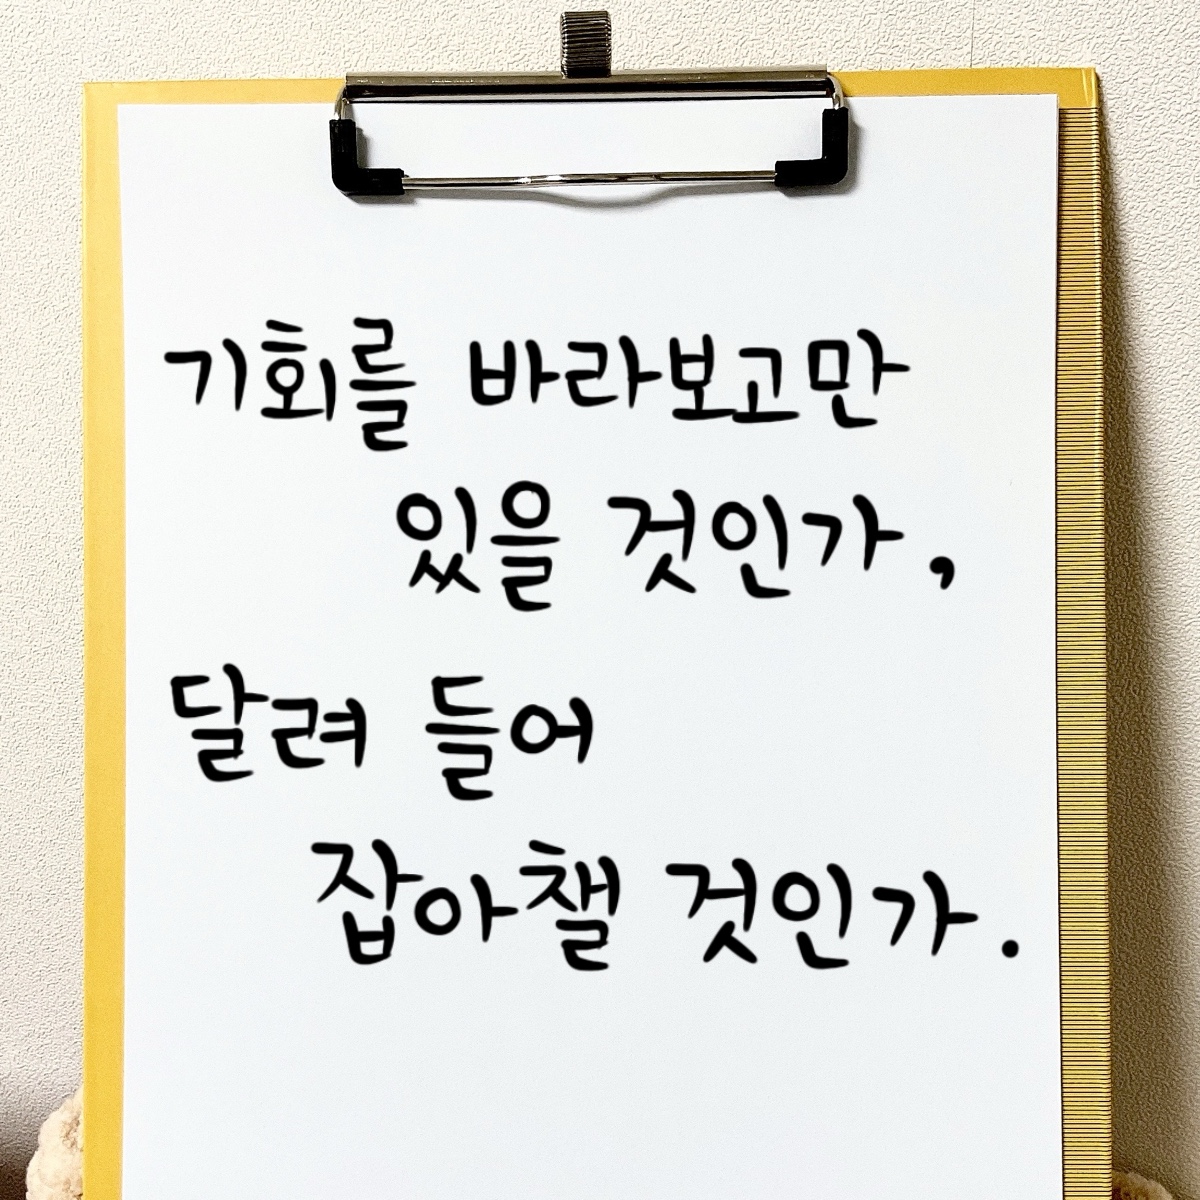 기회를 바라보고만
있을 것인가,
달려 들어
잡아챌 것인가.